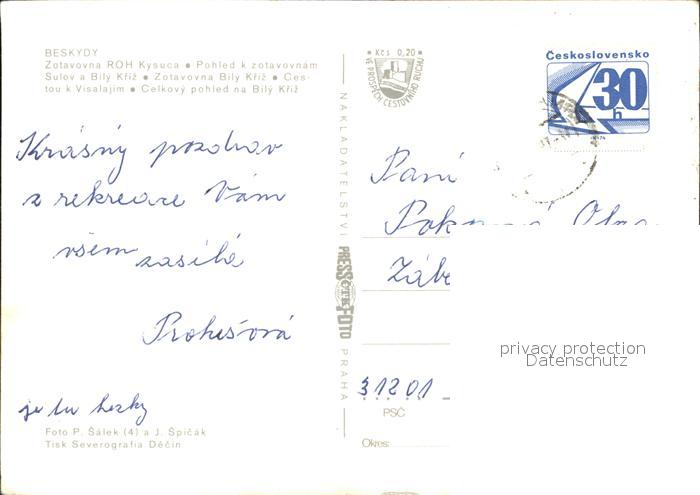 BESKYDY
Zotavovna ROH Kysuca ● Pohled k zotavovnám
Sulov a Bílý Kříž ● Zotavovna Bílý Kříž ● Ces-
tou k Visalajím ● Celkový pohled na Bílý Kříž
Krásný pozdrav
z rekreace Vám
všem zasílá
Prokešová
je tu hezky
Foto P. Šálek (4) a J. Špičák
Tisk Severografia Děčín
NAKLADATELSTVÍ PRESSFOTO PRAHA
Kčs 0,20
VE PROSPĚCH CESTOVNÍHO RUCHU
Československo
30
h
Paní
Olga
Zábě
privacy protection
Datenschutz
31201
PSČ
Okres: